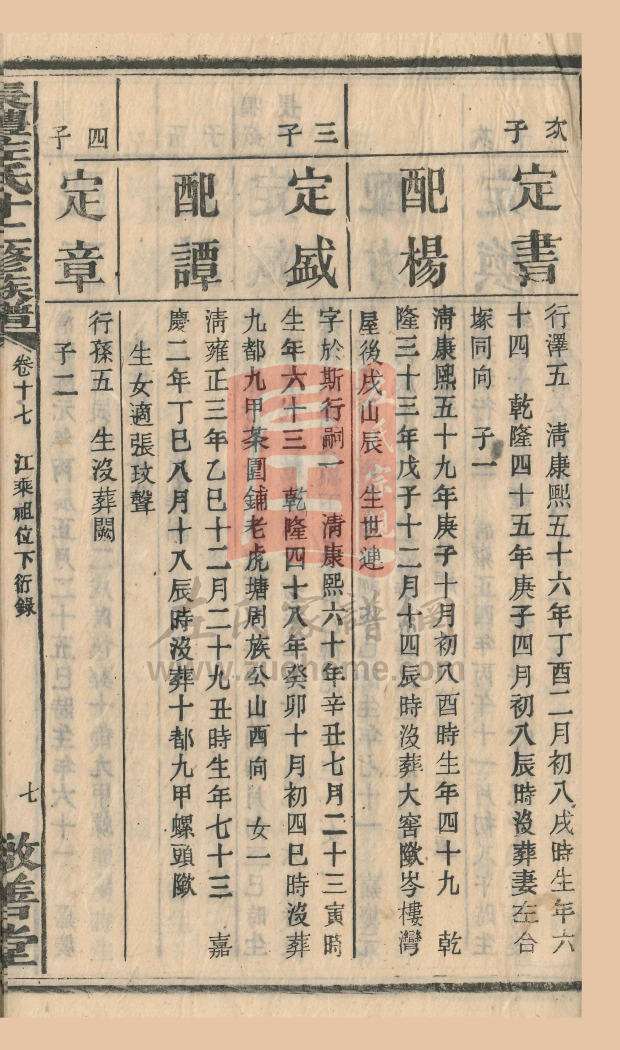 次子
定書
行澤五　清康熙五十六年丁酉二月初八戌時生年六
十四　乾隆四十五年庚子四月初八辰時沒葬妻左合
塚同向　子一
配楊
清康熙五十九年庚子十月初八酉時生年四十九　乾
隆三十三年戊子十二月十四辰時沒葬大窖嘅岑樓灣
屋後戌山辰　生世連
三子
定盛
字於斯行嗣一　清康熙六十年辛丑七月二十三寅時
生年六十三　乾隆四十八年癸卯十月初四巳時沒葬
九都九甲茶園鋪老虎塘周族公山西向　女一
配譚
清雍正三年乙巳十二月二十九丑時生年七十三　嘉
慶二年丁巳八月十八辰時沒葬十都九甲螺頭
生女適張玟聲
四子
定章
行孫五　生沒葬闕
子二
長豐左氏十二修族譜
卷十七　江乘祖位下衍錄
七
敬善堂
左氏宗親
左氏家譜網
www.zuohome.com